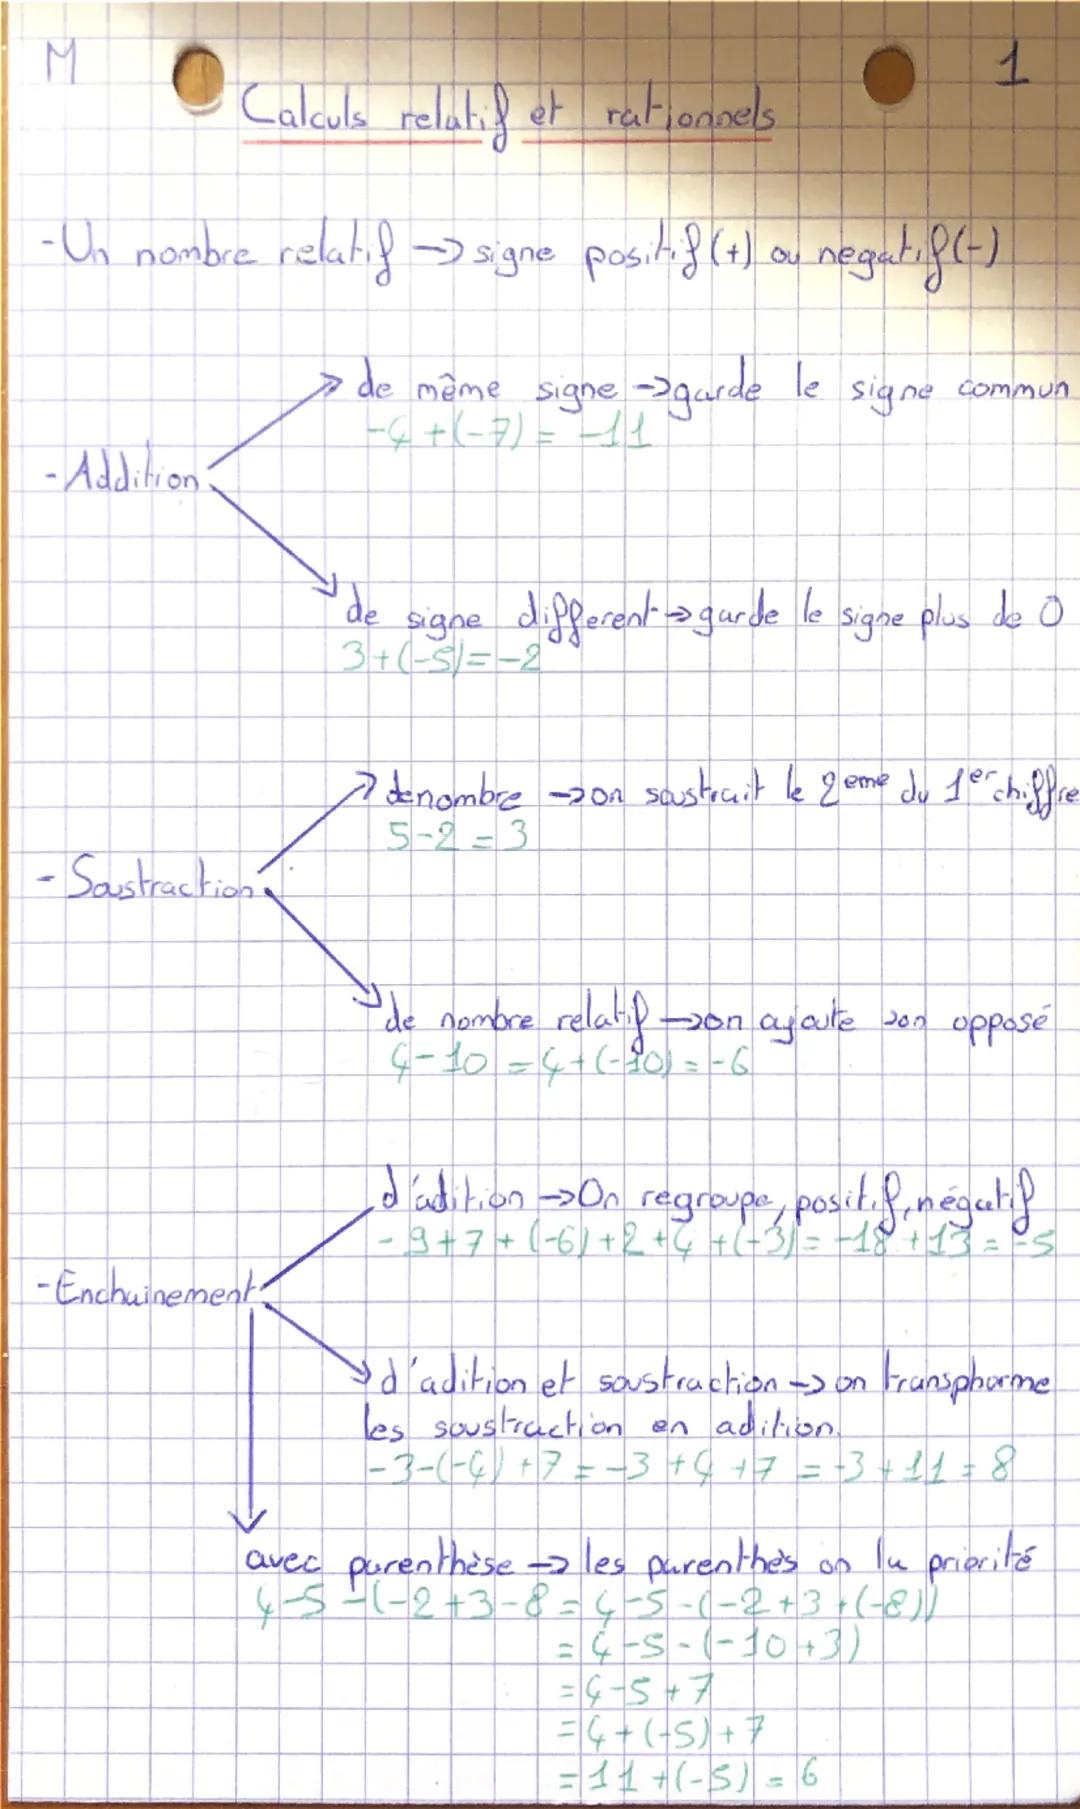 M
1
Calculs relatif et rationnels
- Un nombre relatif → signe positif (+) ou negatif (-)
de même signe → garde le signe commun
-4 + (-7) = -11
- Addition
de signe different → garde le signe plus de 0
3 + (-5) = -2
denombre → on soustrait le 2eme du 1er chiffre
5 - 2 = 3
- Soustraction
de nombre relatif → on ajoute son opposé
4 - 10 = 4 + (-10) = -6
d'adition → On regroupe, positif, négatif
- 9 + 7 + (-6) + 2 + 4 + (-3) = -18 + 13 = -5
- Enchainement
d'adition et soustraction → on transphorme
les soustraction en adition.
-3 - (-4) + 7 = -3 + 4 + 7 = -3 + 11 = 8
avec parenthèse → les parenthès on la priorité
4 - 5 - (-2 + 3 - 8 = 4 - 5 - (-2 + 3 + (-8))
= 4 - 5 - (-10 + 3)
= 4 - 5 + 7
= 4 + (-5) + 7
= 11 + (-5) = 6